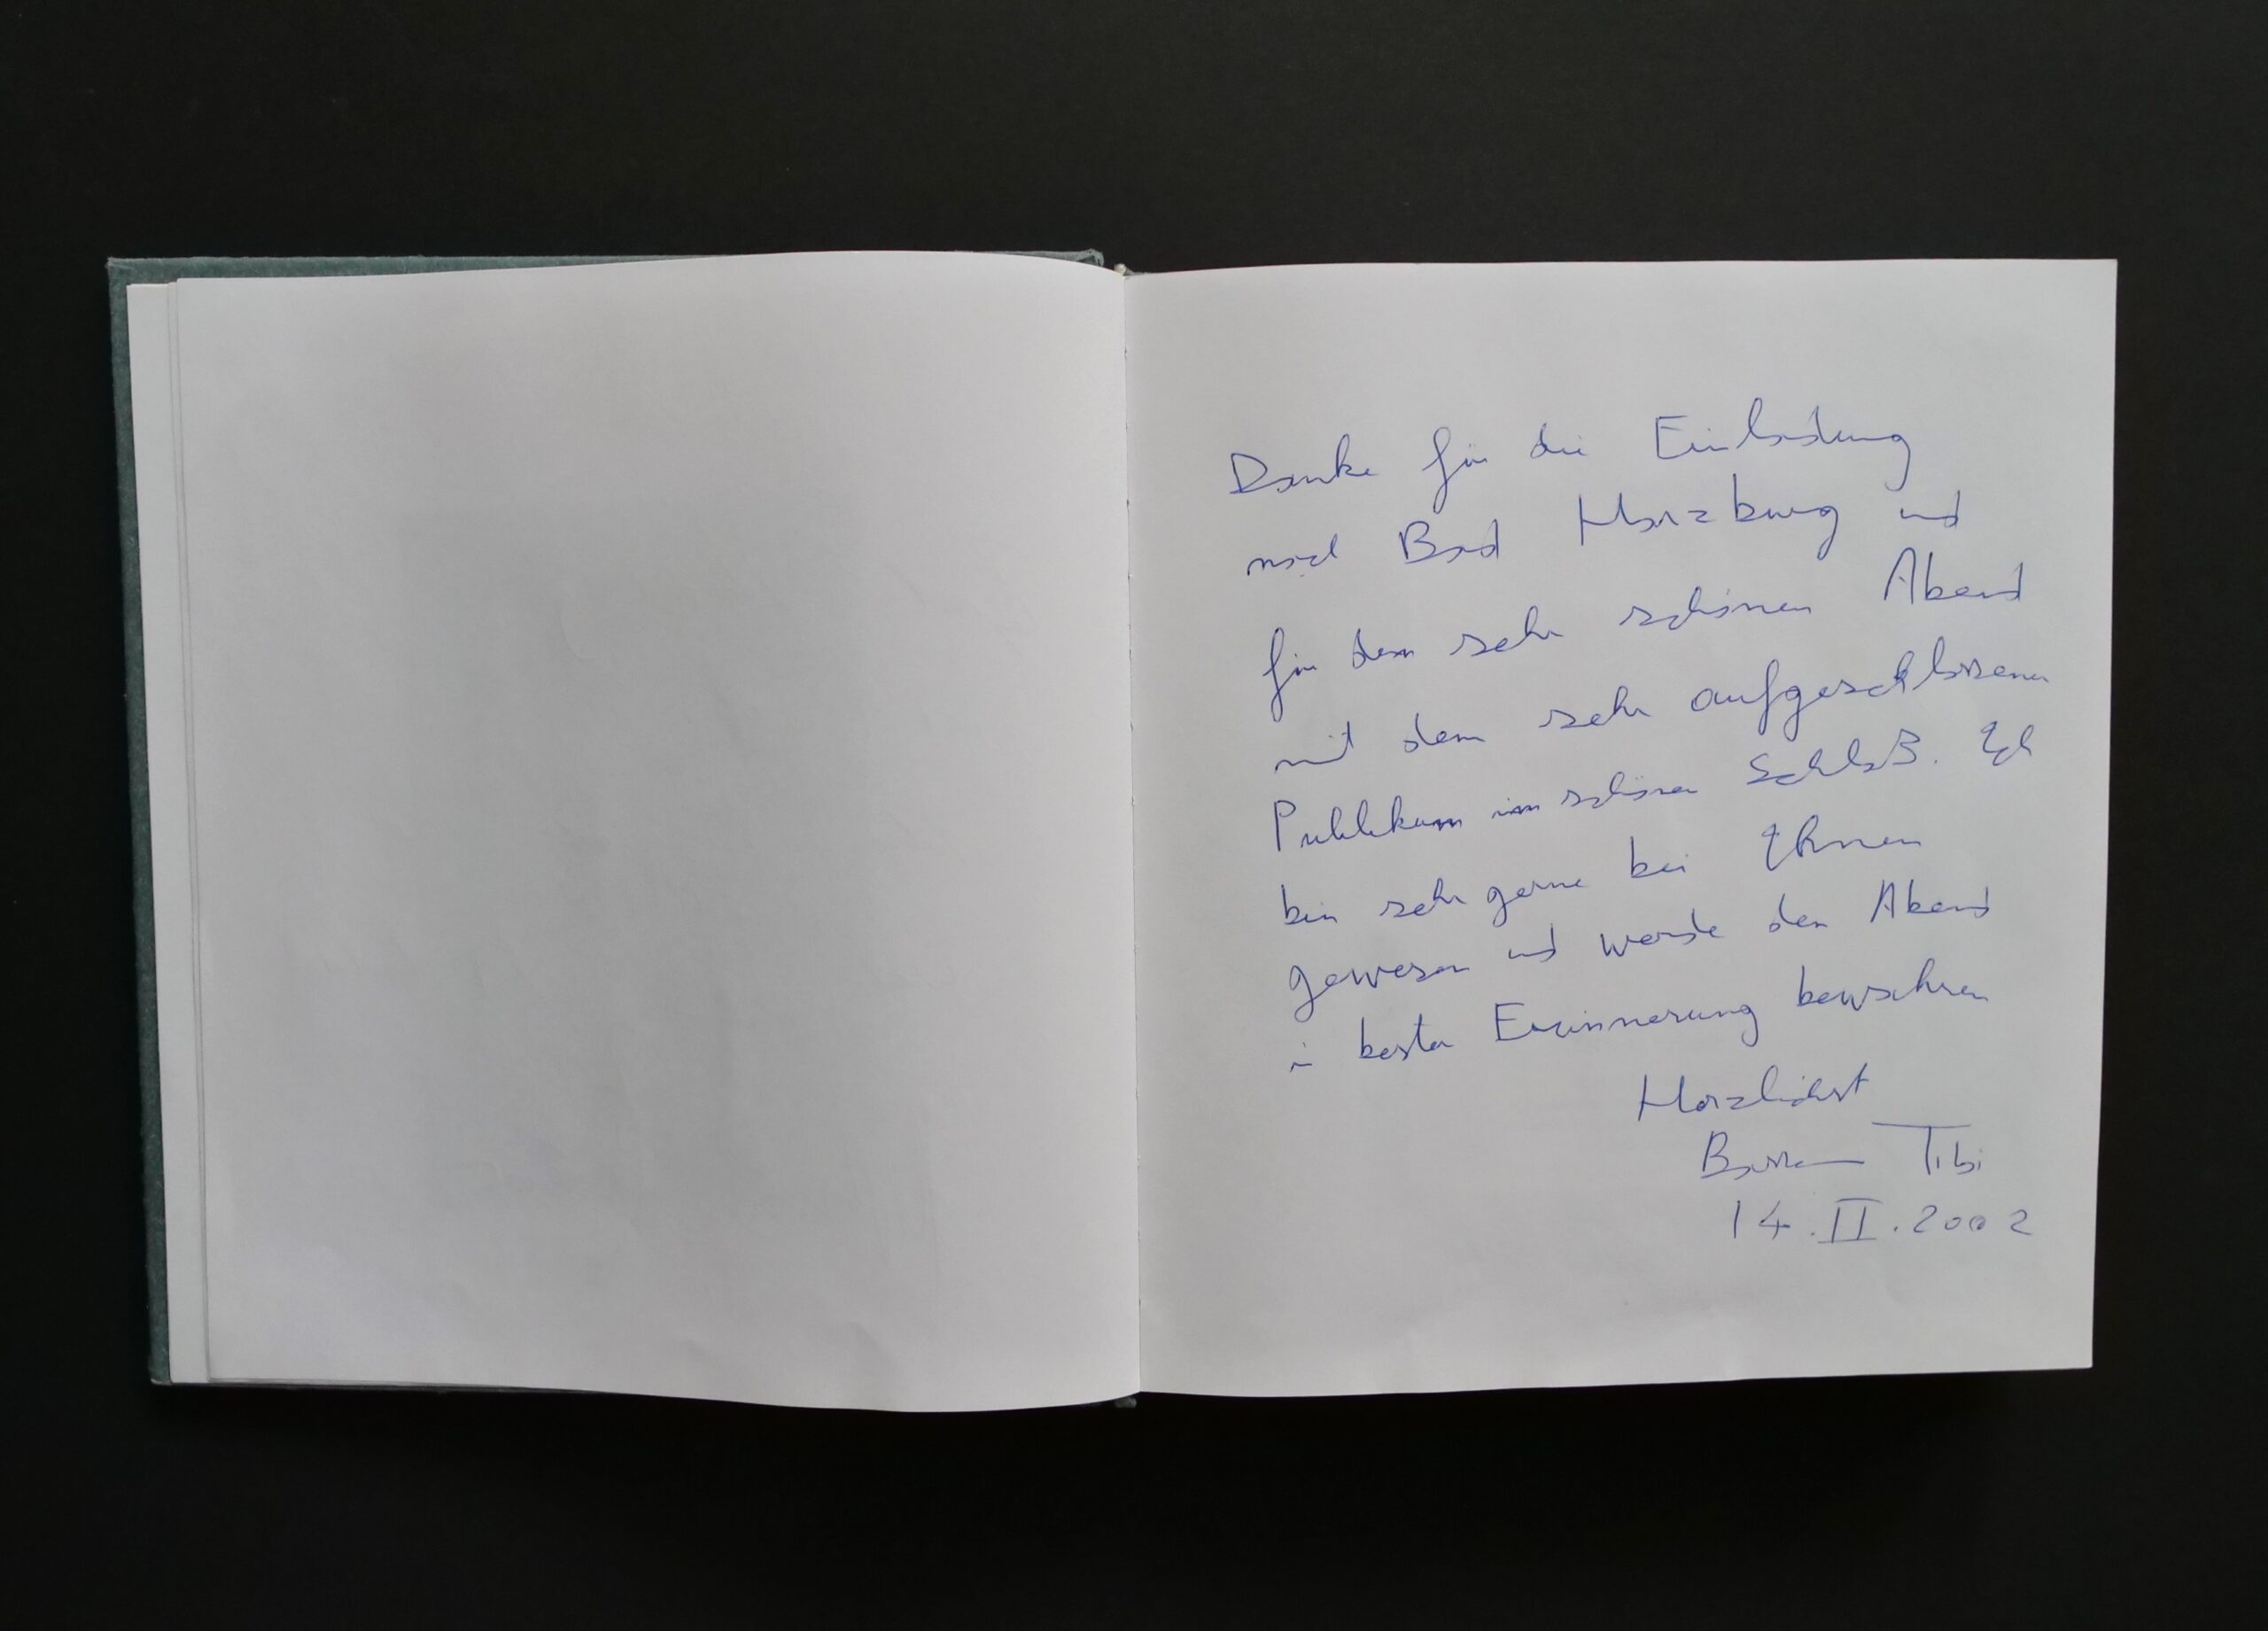 Danke für die Einladung
nach Bad Harzburg und
für den sehr schönen Abend
mit dem sehr aufgeschlossenen
Publikum im schönen Schloß. Ich
bin sehr gerne bei Ihnen
gewesen und werde den Abend
in bester Erinnerung bewahren
Herzlichst
Bassam Tibi
14.II.2002